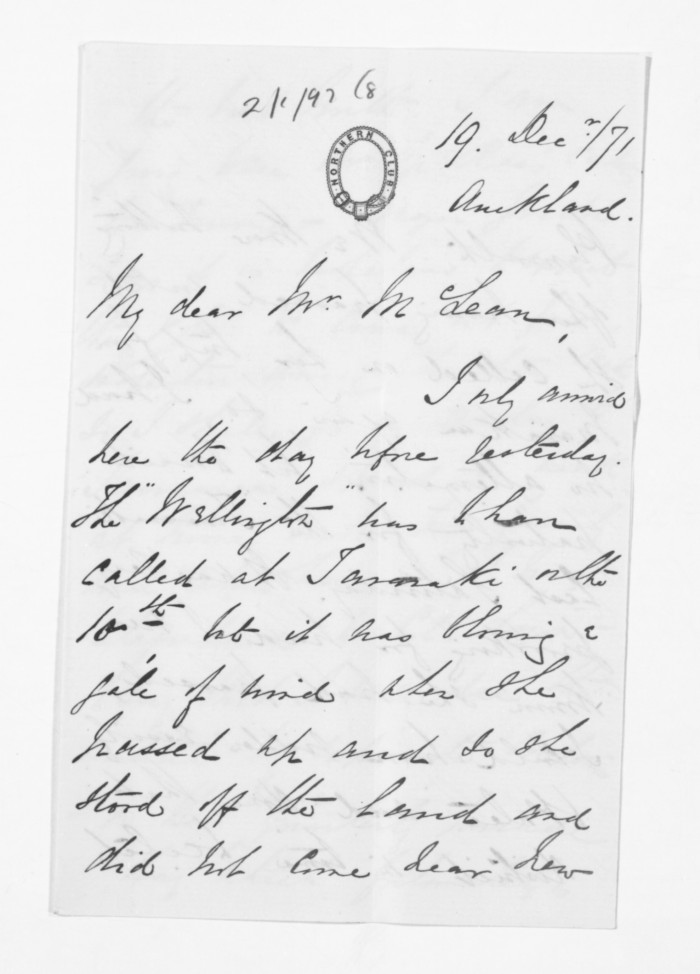 2/1/97 (8
NORTHERN CLUB
19. Decr/71
Auckland.
My dear Mr. McLean,
I only arrived
here the day before yesterday.
The "Wellington" was to have
called at Taranaki on the
10th, but it was blowing a
gale of wind when she
passed up and so she
stood off the land and
did not come near New